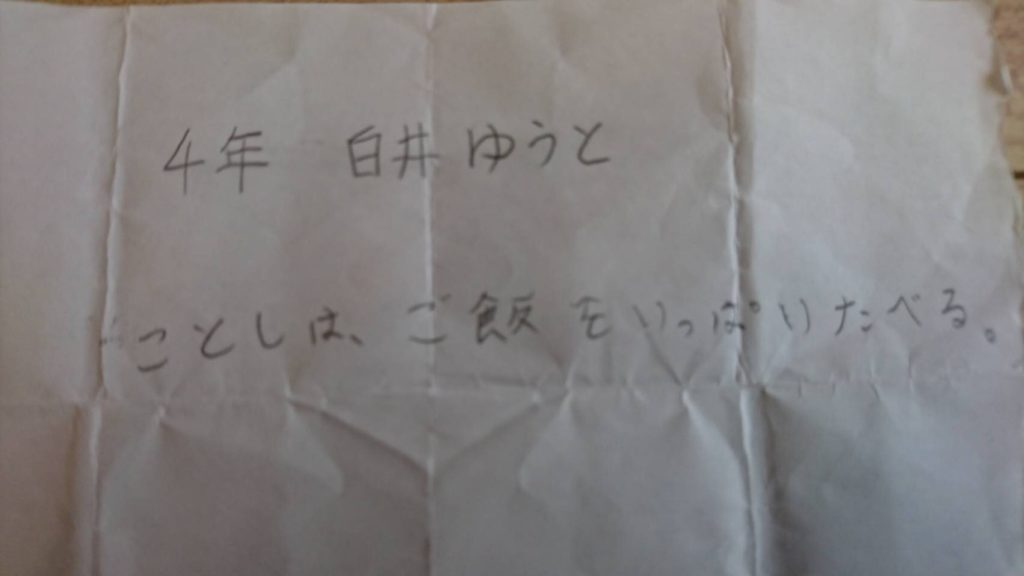 4年 白井ゆうと
ことしは、ご飯をいっぱいたべる。